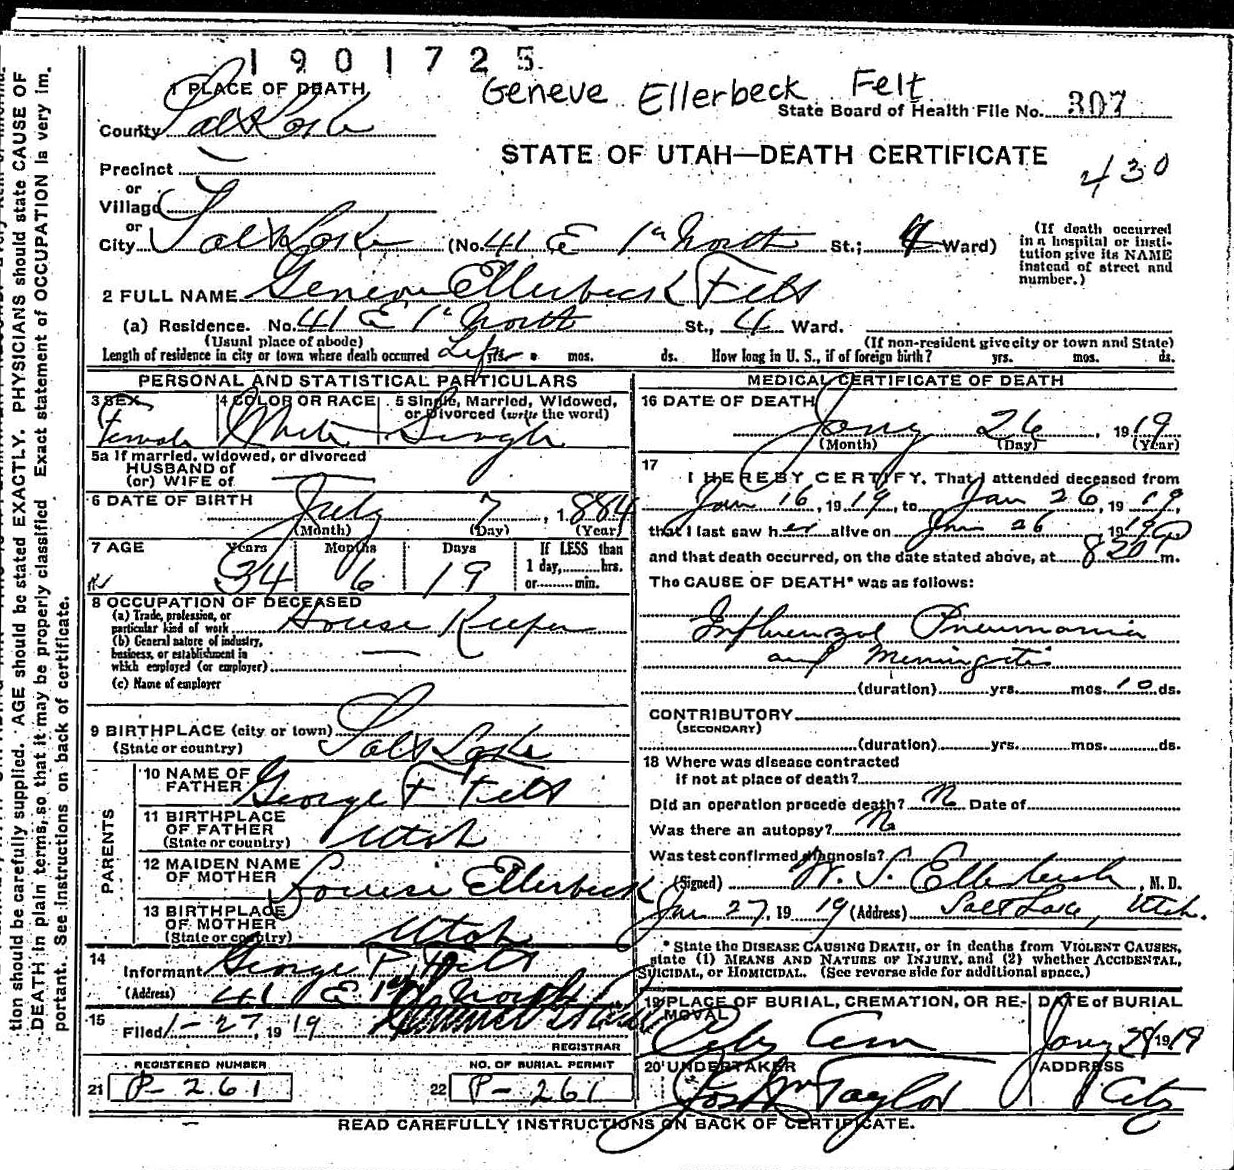 1901725
Geneve Ellerbeck Felt
1 PLACE OF DEATH
State Board of Health File No. 307
County Salt Lake
STATE OF UTAH—DEATH CERTIFICATE
430
Precinct
or
Village
or
City Salt Lake (No. 41 E 1st North St.; 4 Ward)
(If death occurred in a hospital or institution give its NAME instead of street and number.)
2 FULL NAME Geneve Ellerbeck Felt
(a) Residence. No. 41 E 1st North St., 4 Ward.
(Usual place of abode) (If non-resident give city or town and State)
Length of residence in city or town where death occurred Life yrs. mos. ds. How long in U. S., if of foreign birth? yrs. mos. ds.
PERSONAL AND STATISTICAL PARTICULARS
3 SEX 4 COLOR OR RACE 5 Single, Married, Widowed, or Divorced (write the word)
Female White Single
5a If married, widowed, or divorced
HUSBAND of
(or) WIFE of
6 DATE OF BIRTH July 7, 1884
(Month) (Day) (Year)
7 AGE Years Months Days If LESS than
34 6 19 1 day, hrs.
or min.
8 OCCUPATION OF DECEASED
(a) Trade, profession, or particular kind of work House Keeper
(b) General nature of industry, business, or establishment in which employed (or employer)
(c) Name of employer
9 BIRTHPLACE (city or town) Salt Lake
(State or country)
PARENTS
10 NAME OF FATHER George F Felt
11 BIRTHPLACE OF FATHER Utah
(State or country)
12 MAIDEN NAME OF MOTHER Louise Ellerbeck
13 BIRTHPLACE OF MOTHER Utah
(State or country)
14 Informant George P. Felt
(Address) 41 E 1st North
15 Filed 1-27, 1919
REGISTRAR
REGISTERED NUMBER NO. OF BURIAL PERMIT
21 P-261 22 P-261
MEDICAL CERTIFICATE OF DEATH
16 DATE OF DEATH
Jany 26, 1919
(Month) (Day) (Year)
17 I HEREBY CERTIFY, That I attended deceased from
Jan 16, 1919, to Jan 26, 1919,
that I last saw her alive on Jan 26 1919
and that death occurred, on the date stated above, at 820 P m.
The CAUSE OF DEATH* was as follows:
Influenzal Pneumonia
and Meningitis
(duration) yrs. mos. 10 ds.
CONTRIBUTORY
(SECONDARY)
(duration) yrs. mos. ds.
18 Where was disease contracted
if not at place of death?
Did an operation precede death? No Date of
Was there an autopsy? No
Was test confirmed diagnosis?
(Signed) W. S. Ellerbeck, M. D.
Jan 27, 1919 (Address) Salt Lake, Utah.
* State the DISEASE CAUSING DEATH, or in deaths from VIOLENT CAUSES,
state (1) MEANS AND NATURE OF INJURY, and (2) whether ACCIDENTAL,
SUICIDAL, or HOMICIDAL. (See reverse side for additional space.)
19 PLACE OF BURIAL, CREMATION, OR REMOVAL DATE of BURIAL
City Cem Jany 28 1919
20 UNDERTAKER ADDRESS
Jos Wm Taylor City
READ CAREFULLY INSTRUCTIONS ON BACK OF CERTIFICATE.
tion should be carefully supplied. AGE should be stated EXACTLY. PHYSICIANS should state CAUSE OF
DEATH in plain terms, so that it may be properly classified. Exact statement of OCCUPATION is very im-
portant. See instructions on back of certificate.